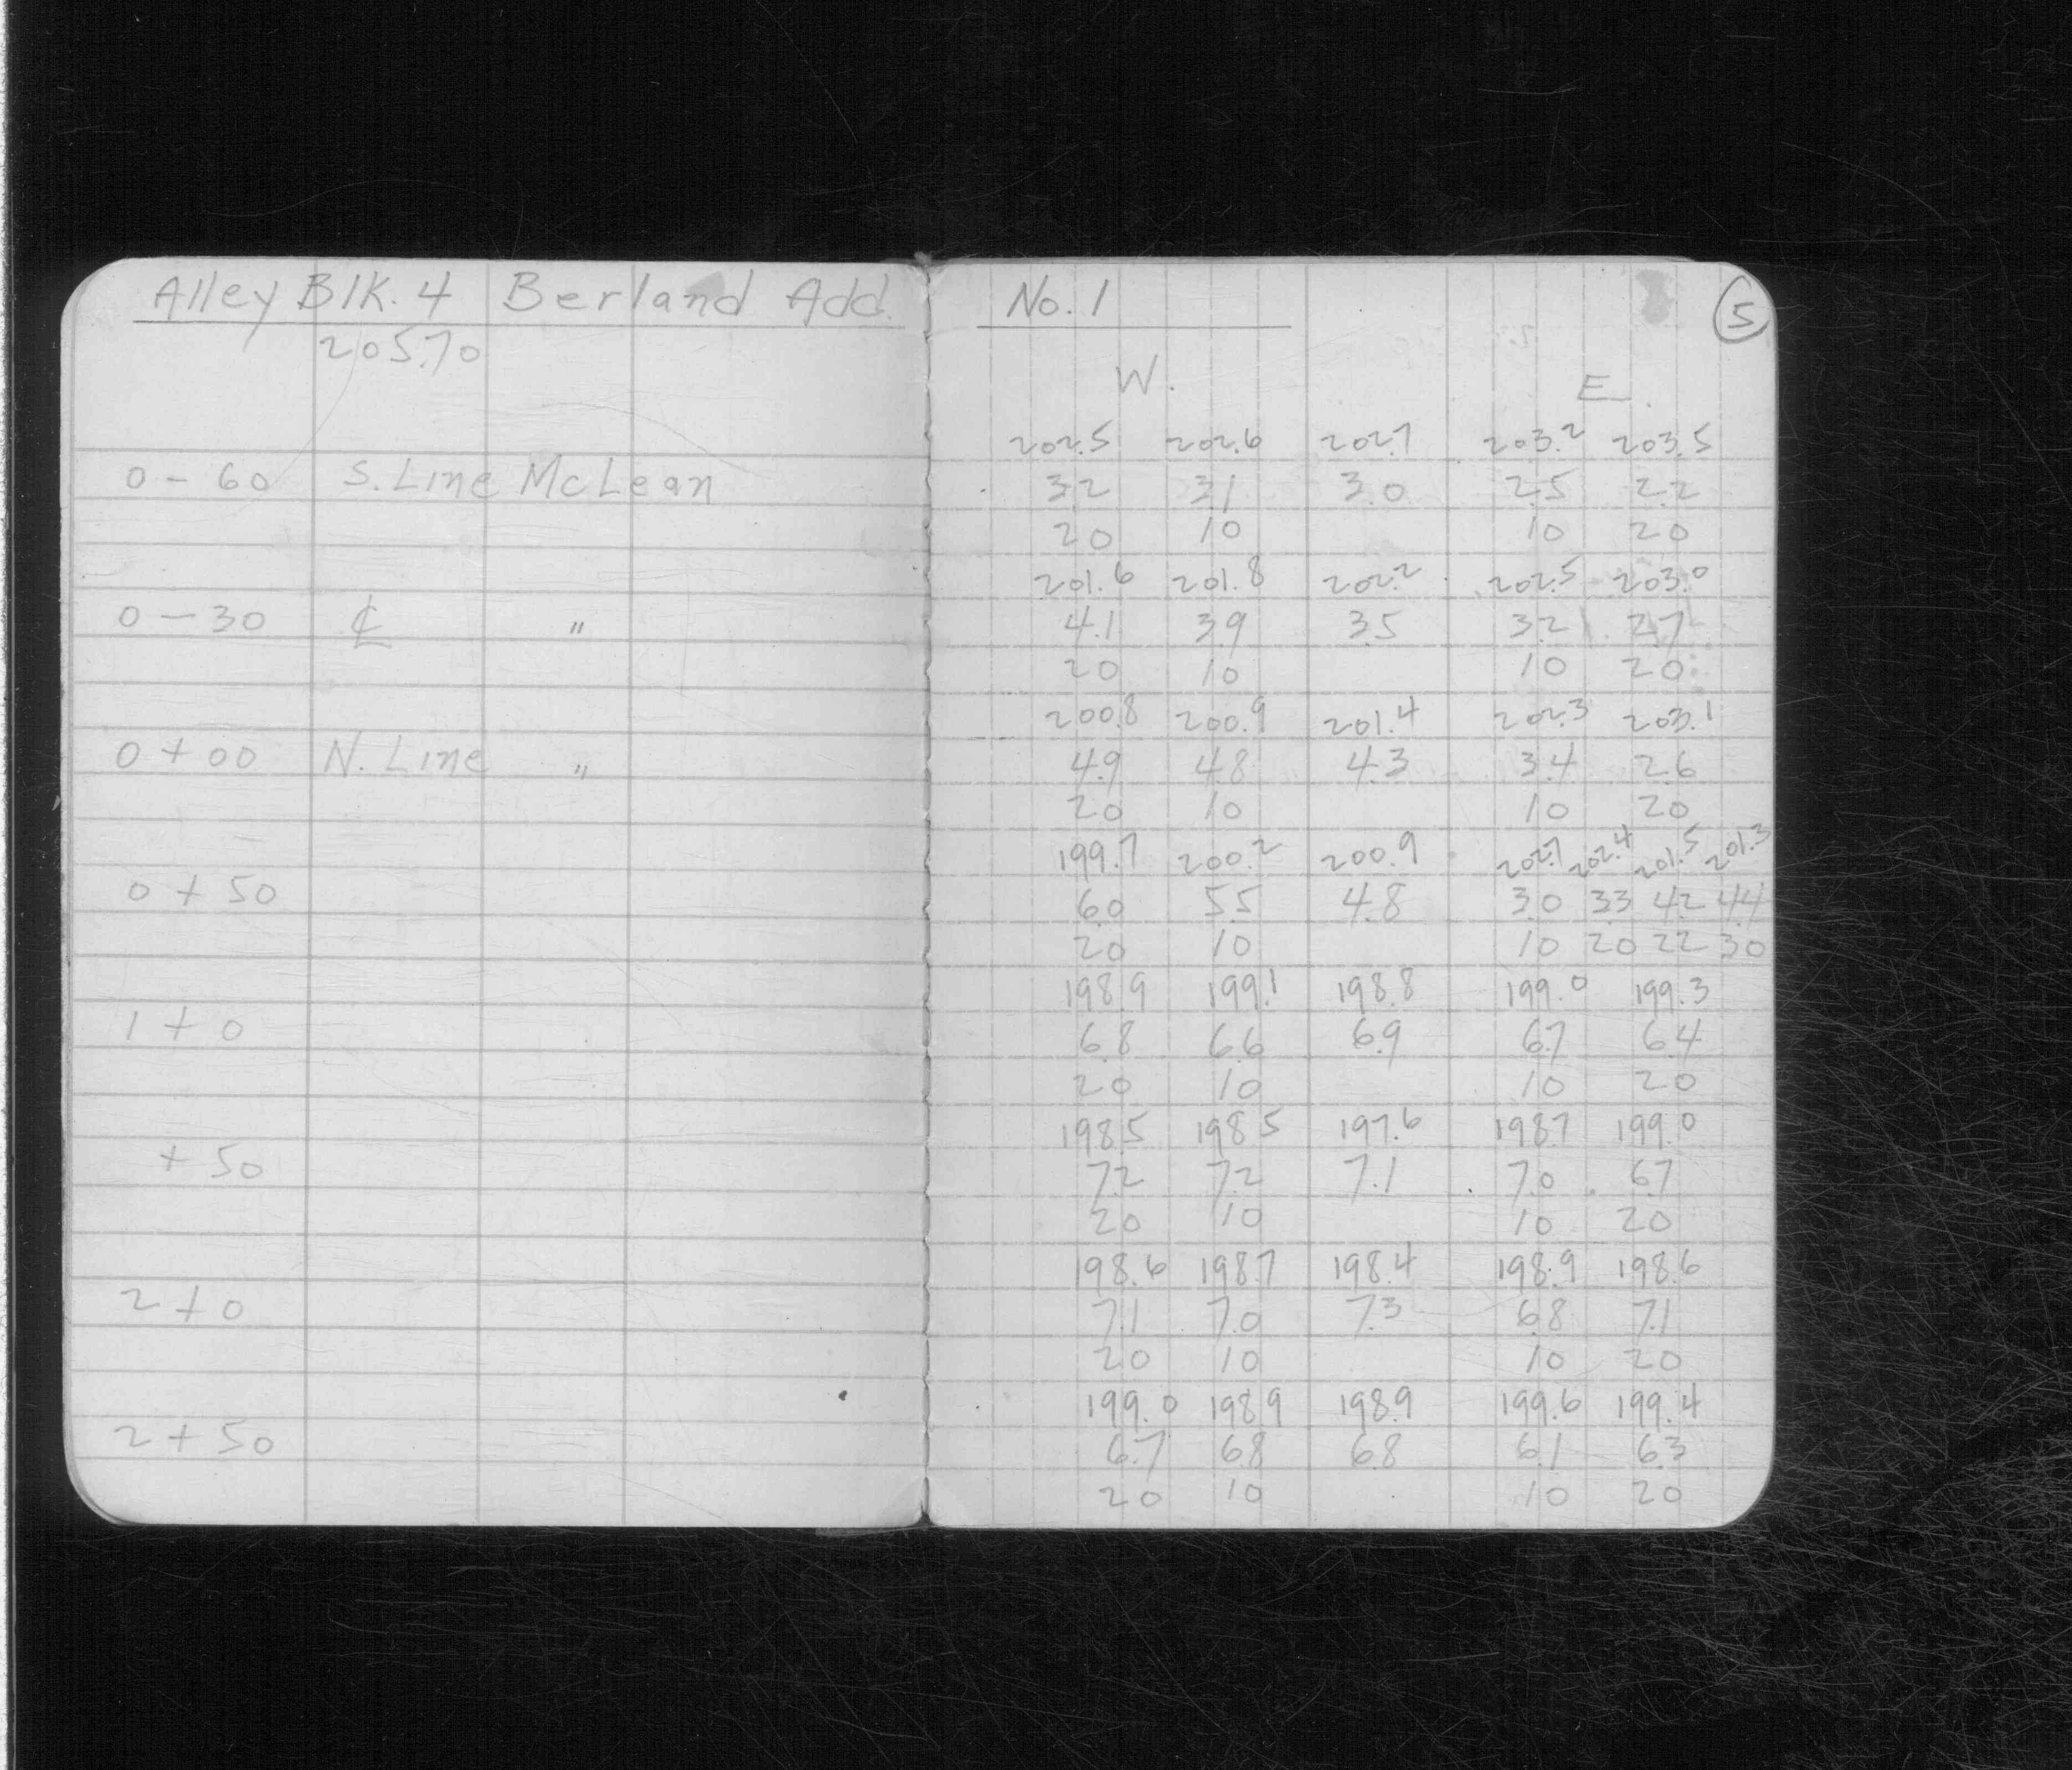 Alley Blk. 4 Berland Add. No. 1 5
205.70
W. E.
202.5 202.6 202.7 203.2 203.5
0 - 60 S. Line McLean 3.2 3.1 3.0 2.5 2.2
20 10 10 20
201.6 201.8 202.2 202.5 203.0
0 - 30 ℄ " 4.1 3.9 3.5 3.2 2.7
20 10 10 20
200.8 200.9 201.4 202.3 203.1
0 + 00 N. Line " 4.9 4.8 4.3 3.4 2.6
20 10 10 20
199.7 200.2 200.9 202.7 202.4 201.5 201.3
0 + 50 6.0 5.5 4.8 3.0 3.3 4.2 4.4
20 10 10 20 22 30
198.9 199.1 198.8 199.0 199.3
1 + 0 6.8 6.6 6.9 6.7 6.4
20 10 10 20
198.5 198.5 197.6 198.7 199.0
+ 50 7.2 7.2 7.1 7.0 6.7
20 10 10 20
198.6 198.7 198.4 198.9 198.6
2 + 0 7.1 7.0 7.3 6.8 7.1
20 10 10 20
199.0 198.9 198.9 199.6 199.4
2 + 50 6.7 6.8 6.8 6.1 6.3
20 10 10 20